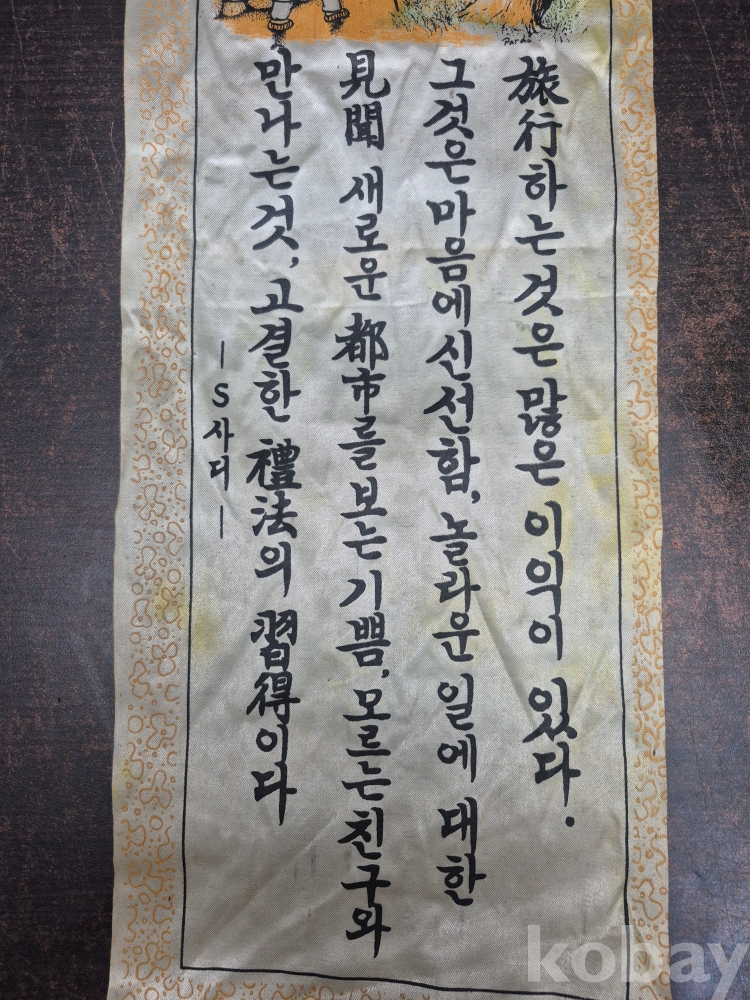 旅行하는것은 많은 이익이 있다.
그것은 마음에신선함, 놀라운 일에 대한
見聞 새로운 都市를 보는 기쁨, 모르는 친구와
만나는것, 고결한 禮法의 習得이다
— S 사디 —
kobay